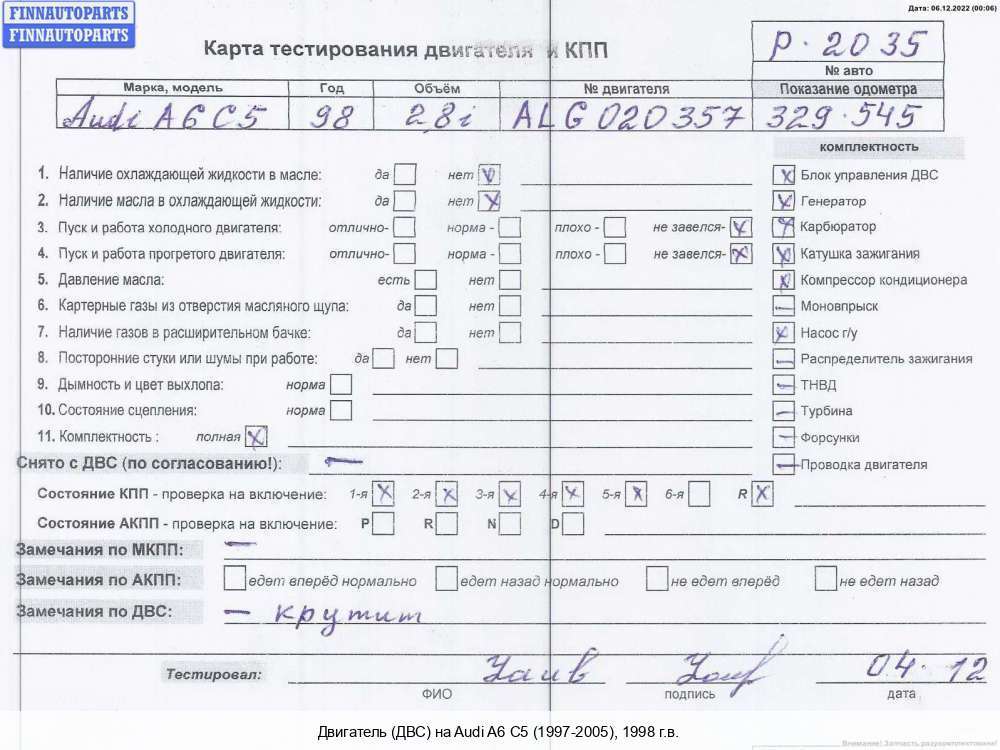 FINNAUTOPARTS
FINNAUTOPARTS
Дата: 06.12.2022 (00:06)
Карта тестирования двигателя и КПП
Р·2035
№ авто
Марка, модель Год Объём № двигателя Показание одометра
Audi A6 C5 98 2,8i ALG020357 329·545
комплектность
1. Наличие охлаждающей жидкости в масле: да нет
Блок управления ДВС
2. Наличие масла в охлаждающей жидкости: да нет
Генератор
3. Пуск и работа холодного двигателя: отлично- норма - плохо - не завелся-
Карбюратор
4. Пуск и работа прогретого двигателя: отлично- норма - плохо - не завелся-
Катушка зажигания
5. Давление масла: есть нет
Компрессор кондиционера
6. Картерные газы из отверстия масляного щупа: да нет
Моновпрыск
7. Наличие газов в расширительном бачке: да нет
Насос г/у
8. Посторонние стуки или шумы при работе: да нет
Распределитель зажигания
9. Дымность и цвет выхлопа: норма
ТНВД
10. Состояние сцепления: норма
Турбина
11. Комплектность : полная
Форсунки
Снято с ДВС (по согласованию!): —
Проводка двигателя
Состояние КПП - проверка на включение: 1-я 2-я 3-я 4-я 5-я 6-я R
Состояние АКПП - проверка на включение: P R N D
Замечания по МКПП: —
Замечания по АКПП: едет вперёд нормально едет назад нормально не едет вперёд не едет назад
Замечания по ДВС: — крутит
Тестировал: 04.12
ФИО подпись дата
Двигатель (ДВС) на Audi A6 C5 (1997-2005), 1998 г.в.
Внимание! Запчасть разукомплектована!